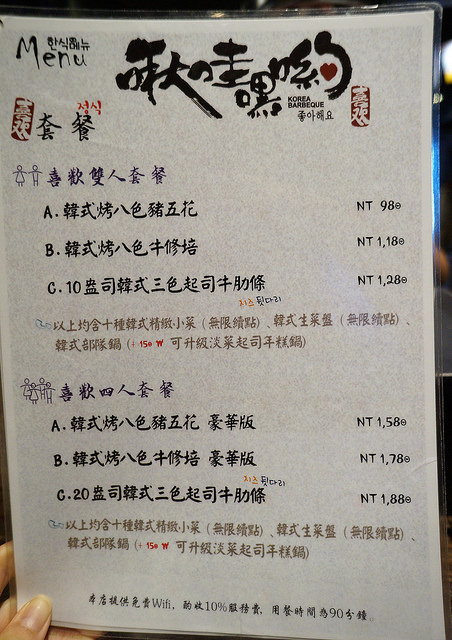 한식메뉴
Menu
啾哇嘿喲
KOREA
BARBEQUE
좋아해요
喜歡
喜歡
정식
套餐
喜歡雙人套餐
A. 韓式烤八色豬五花 NT 980
B. 韓式烤八色牛修培 NT 1,180
C. 10盎司韓式三色起司牛肋條 NT 1,280
치즈 뒷다리
以上均含十種韓式精緻小菜(無限續點)、韓式生菜盤(無限續點)、
韓式部隊鍋(+150₩ 可升級淡菜起司年糕鍋)
喜歡四人套餐
A. 韓式烤八色豬五花 豪華版 NT 1,580
B. 韓式烤八色牛修培 豪華版 NT 1,780
치즈 뒷다리
C. 20盎司韓式三色起司牛肋條 NT 1,880
以上均含十種韓式精緻小菜(無限續點)、韓式生菜盤(無限續點)、
韓式部隊鍋(+150₩ 可升級淡菜起司年糕鍋)
本店提供免費Wifi, 酌收10%服務費, 用餐時間為90分鐘。